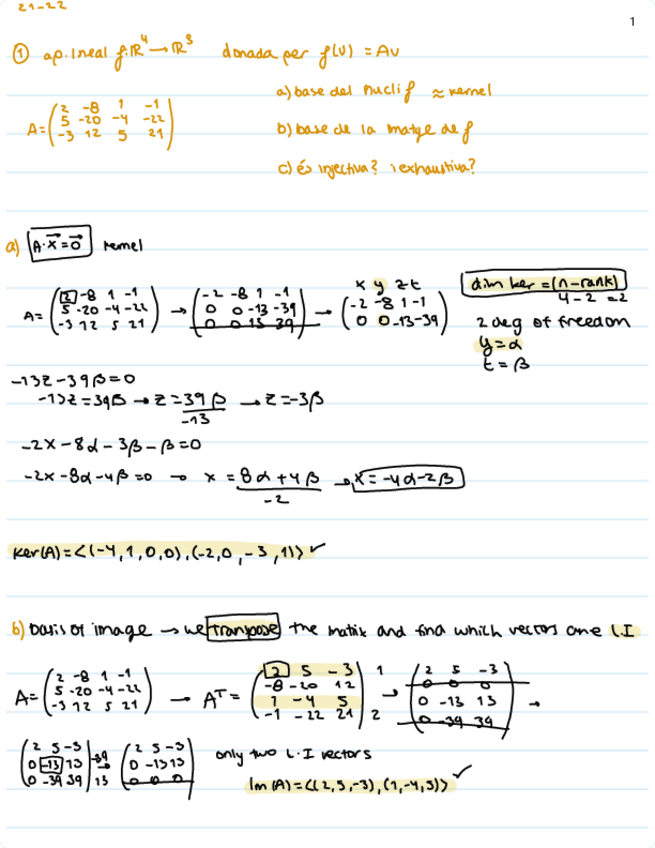 21-22
1
① ap. lineal f:ℝ⁴→ℝ³ donada per f(v) = Av
a) base del nucli f ≈ kernel
A = (2 -8 1 -1
5 -20 -4 -22
-3 12 5 21)
b) base de la imatge de f
c) és injectiva? i exhaustiva?
a) A·x⃗=0⃗ kernel
x y z t
dim ker = (n-rank)
4-2 = 2
A = (2 -8 1 -1
5 -20 -4 -22
-3 12 5 21) → (-2 -8 1 -1
0 0 -13 -39
0 0 13 39) → (-2 -8 1 -1
0 0 -13 -39)
2 deg of freedom
y=α
t=β
-13z-39β=0
-13z=39β → z=39β/-13 → z=-3β
-2x-8α-3β-β=0
-2x-8α-4β=0 → x = 8α+4β/-2 → x=-4α-2β
Ker(A)=<(-4,1,0,0),(-2,0,-3,1)> ✓
b) basis of image → we transpose the matrix and find which vectors are L.I
A = (2 -8 1 -1
5 -20 -4 -22
-3 12 5 21) → Aᵀ = (2 5 -3
-8 -20 12
1 -4 5
-1 -22 21) 1 2 → (2 5 -3
0 0 0
0 -13 13
0 -39 39) →
(2 5 -3
0 -13 13
0 -39 39) -39 13 → (2 5 -3
0 -13 13
0 0 0)
only two L.I vectors
Im(A)=<(2,5,-3),(1,-4,5)> ✓